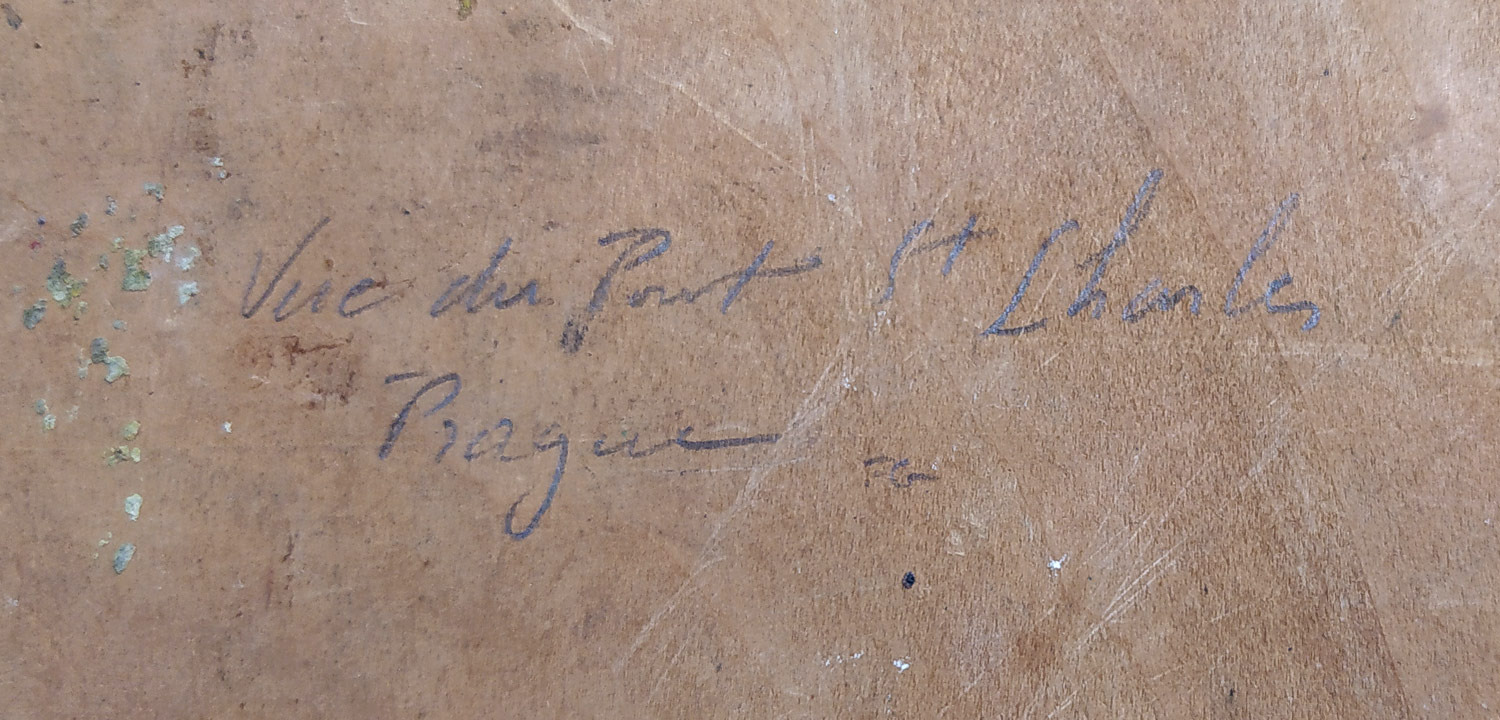 Vue du Pont St Charles
Prague